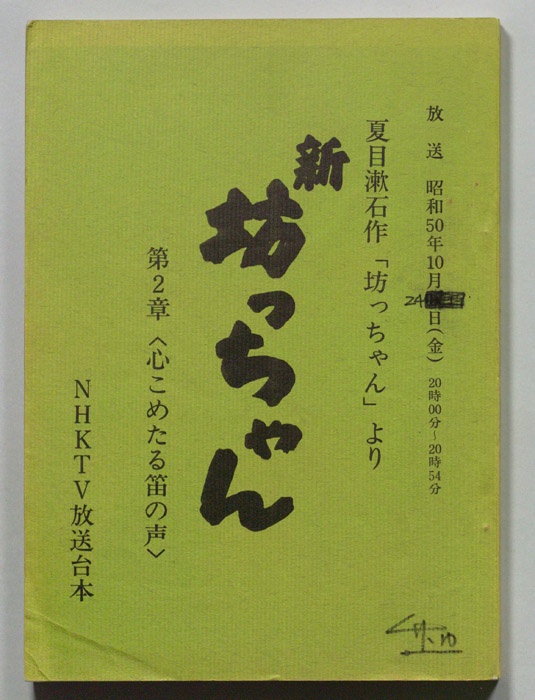 放送 昭和50年10月24日(金) 20時00分〜20時54分
夏目漱石作「坊っちゃん」より
新
坊っちゃん
第2章〈心こめたる笛の声〉
NHKTV放送台本